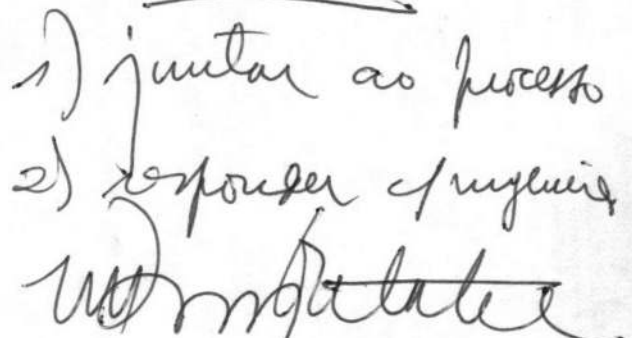 1) juntar ao processo
2) responder c/urgência